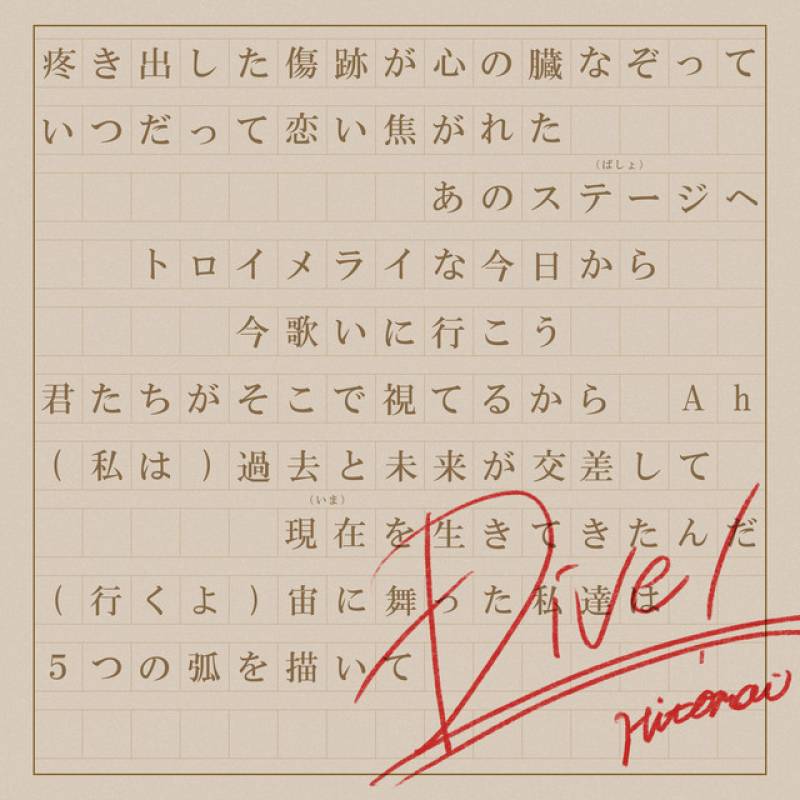 疼き出した傷跡が心の臓なぞって
いつだって恋い焦がれた
(ばしょ)
あのステージへ
トロイメライな今日から
今歌いに行こう
君たちがそこで視てるから　Ah
(私は)過去と未来が交差して
(いま)
現在を生きてきたんだ
(行くよ)宙に舞った私達は
5つの弧を描いて
Dive!
Hitomai